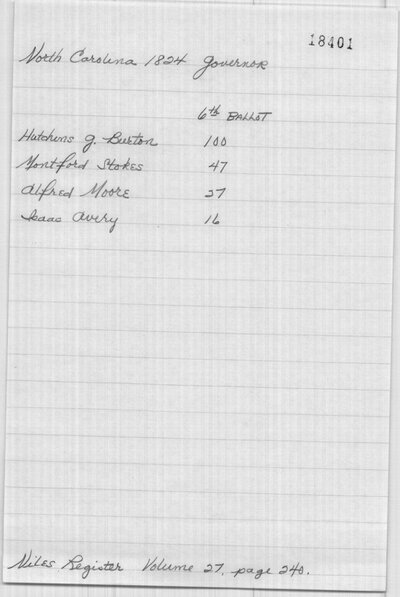 18401
North Carolina 1824 Governor
6th BALLOT
Hutchens G. Burton 100
Montford Stokes 47
Alfred Moore 27
Isaac Avery 16
Niles Register Volume 27, page 240.